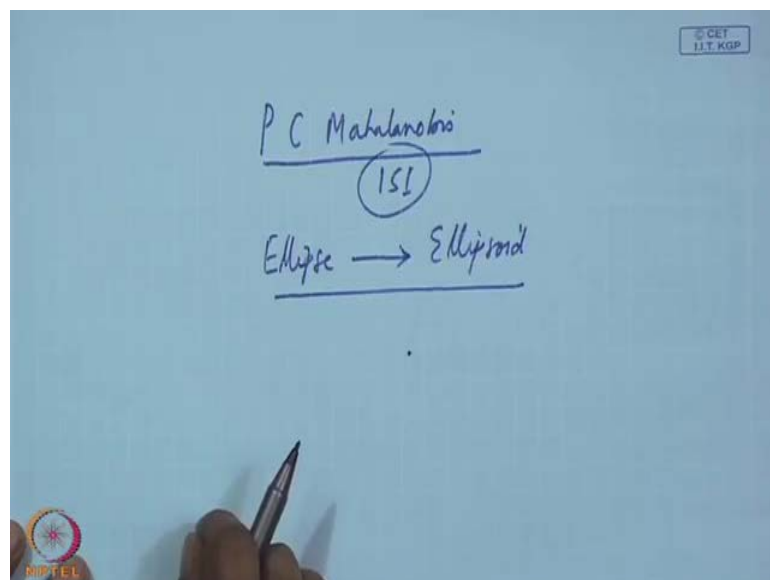 © CET
I.I.T. KGP
P C Mahalanobis
ISI
Ellipse → Ellipsoid
NPTEL